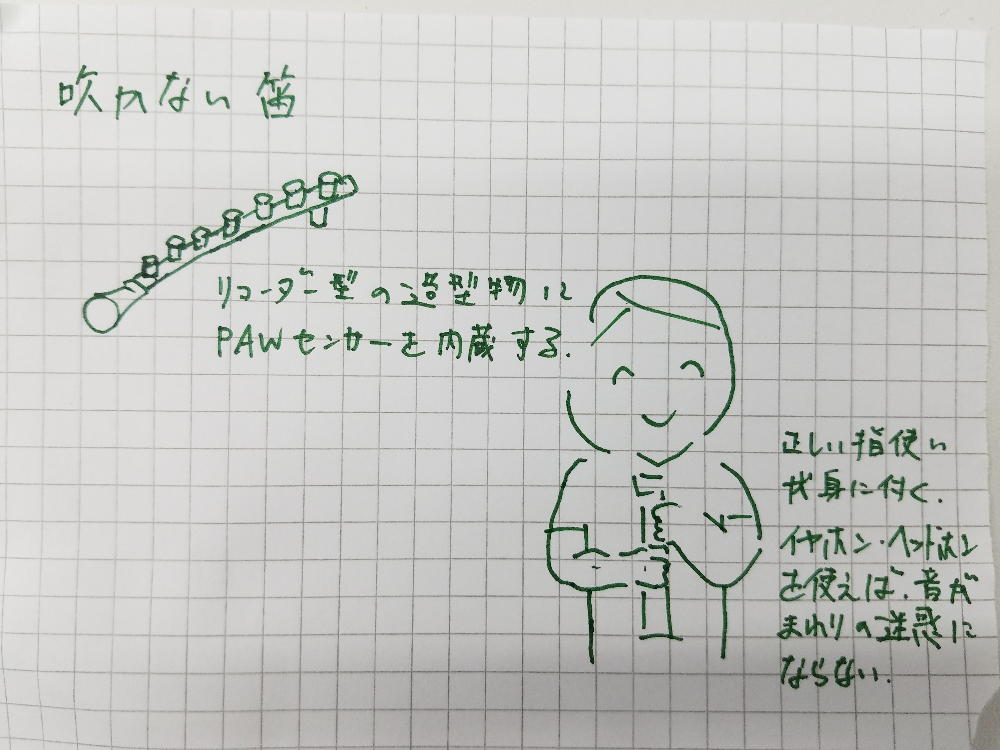 吹かない笛
リコーダー型の造型物に
PAWセンサーを内蔵する.
正しい指使い
が身に付く.
イヤホン・ヘッドホン
を使えば、音が
まわりの迷惑に
ならない.